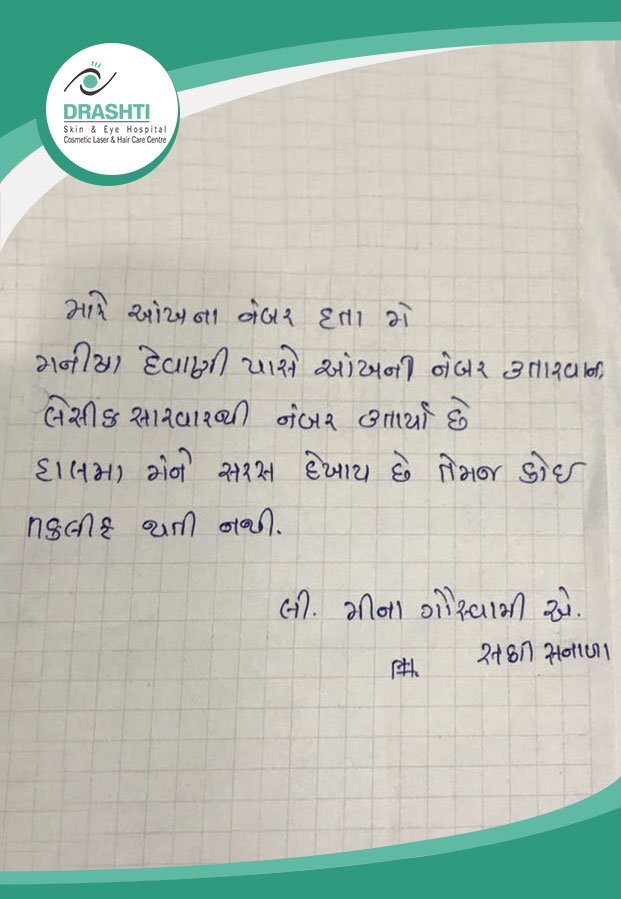 DRASHTI
Skin & Eye Hospital
Cosmetic Laser & Hair Care Centre
મારે આંખના નંબર હતા મે
મનીષા દેવાણી પાસે આંખની નંબર ઉતારવાના
લેસીક સારવારથી નંબર ઉતાર્યા છે
હાલમાં મને સરસ દેખાય છે તેમજ કોઇ
તકલીફ થતી નથી.
લી. મીના ગૌસ્વામી એ.
સનાળા